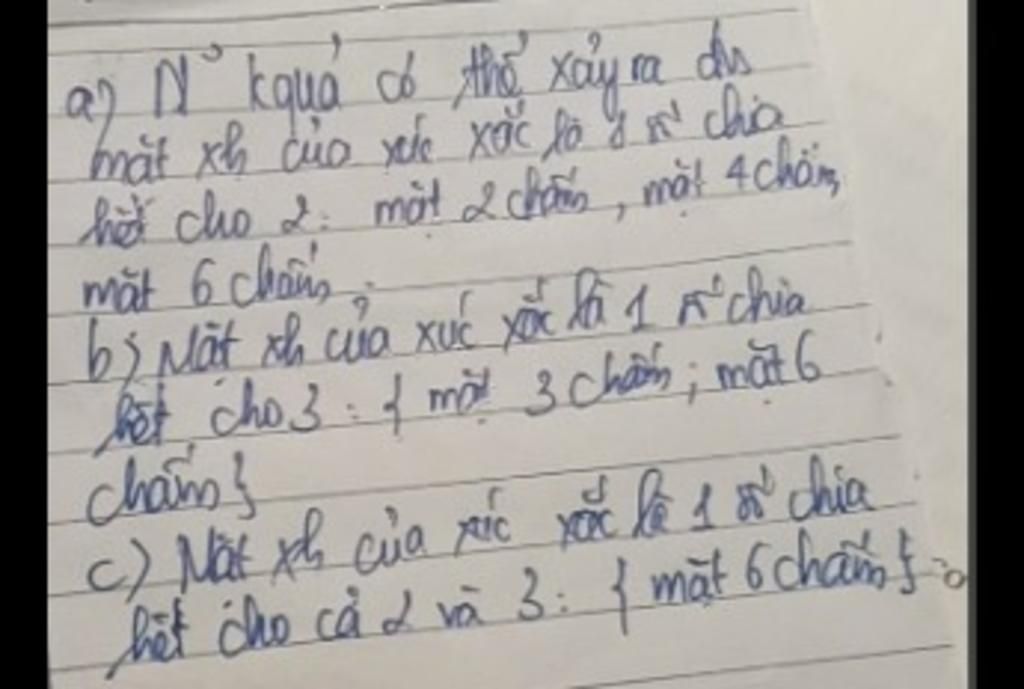 a) N~ kquả có thể xảy ra đv
mặt xh của xúc xắc là 1 số chia
hết cho 2: mặt 2 chấm, mặt 4 chấm,
mặt 6 chấm.
b) Mặt xh của xúc xắc là 1 số chia
hết cho 3: { mặt 3 chấm; mặt 6
chấm}
c) Mặt xh của xúc xắc là 1 số chia
hết cho cả 2 và 3: { mặt 6 chấm}